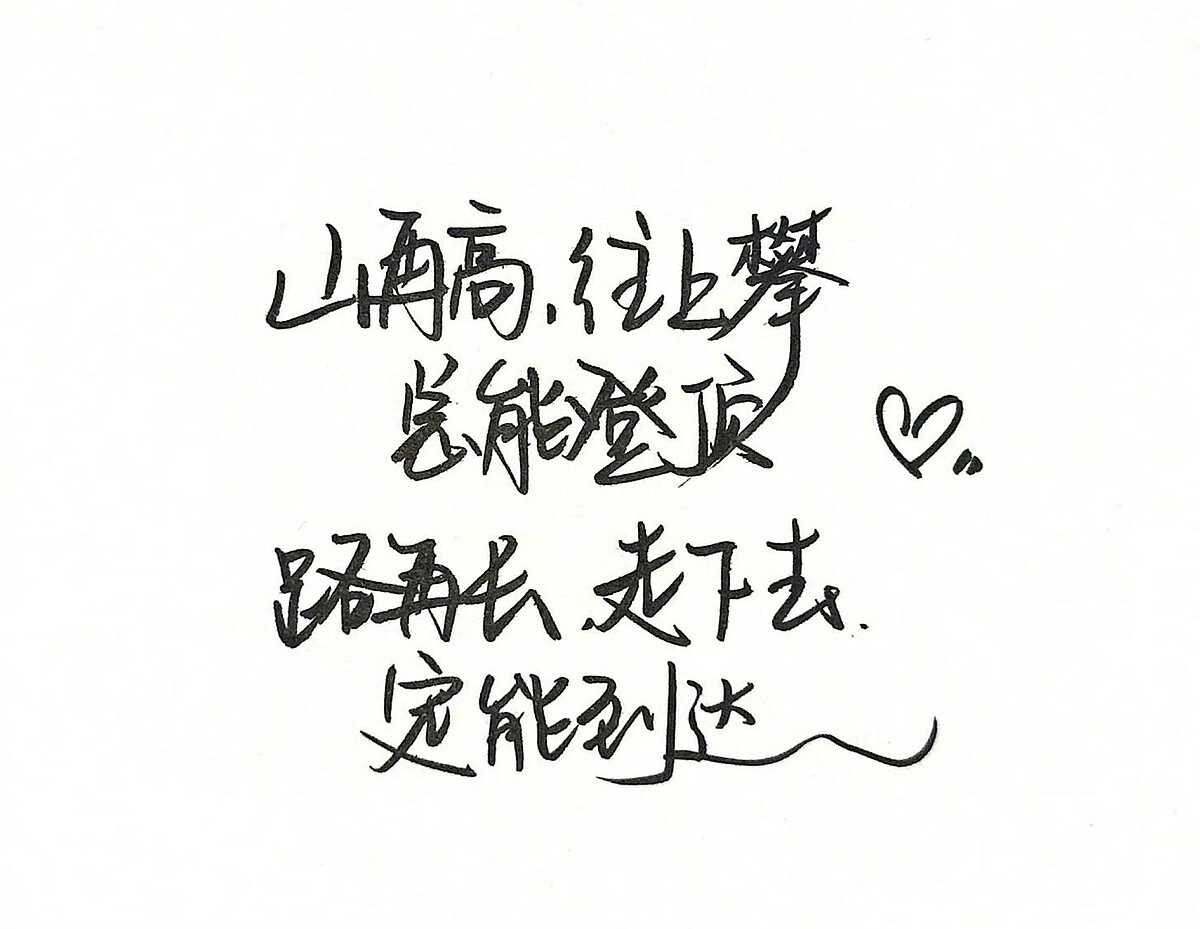 山再高,往上攀
总能登顶
路再长、走下去.
定能到达